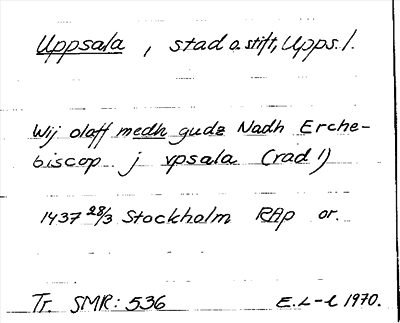 Uppsala, stad o. stift, Upps. l.
Wij olaff medh gudz Nadh Erche-
biscop j vpsala (rad 1)
1437 28/3 Stockholm RAp or.
Tr. SMR: 536 E. L-l 1970.